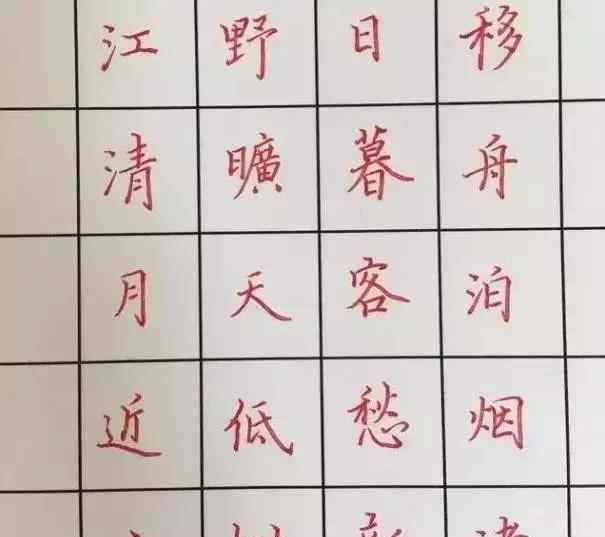 移舟泊烟
日暮客愁
野曠天低
江清月近